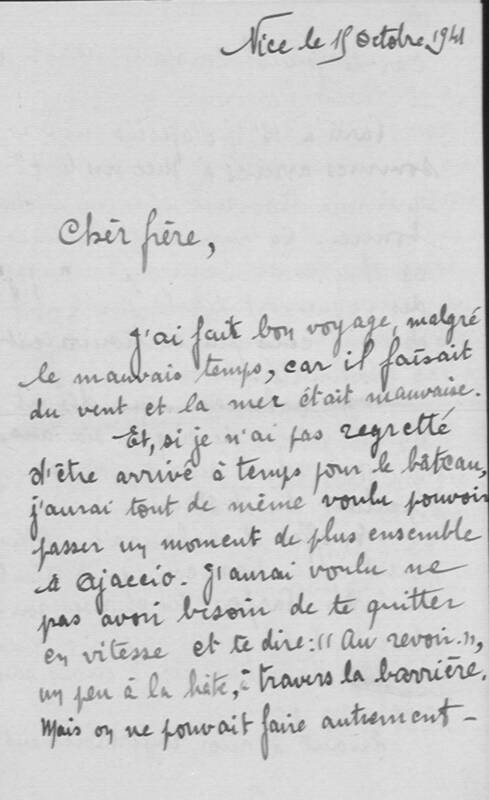 Nice le 15 Octobre 1941
Chèr frère,
J'ai fait bon voyage, malgré
le mauvais temps, car il faisait
du vent et la mer était mauvaise.
Et, si je n'ai pas regretté
d'être arrivé à temps pour le bâteau,
j'aurai tout de même voulu pouvoir
passer un moment de plus ensemble
à Ajaccio. J'aurai voulu ne
pas avoir besoin de te quitter
en vitesse et te dire: "Au revoir.",
un peu à la hâte, à travers la barrière.
Mais on ne pouvait faire autrement -